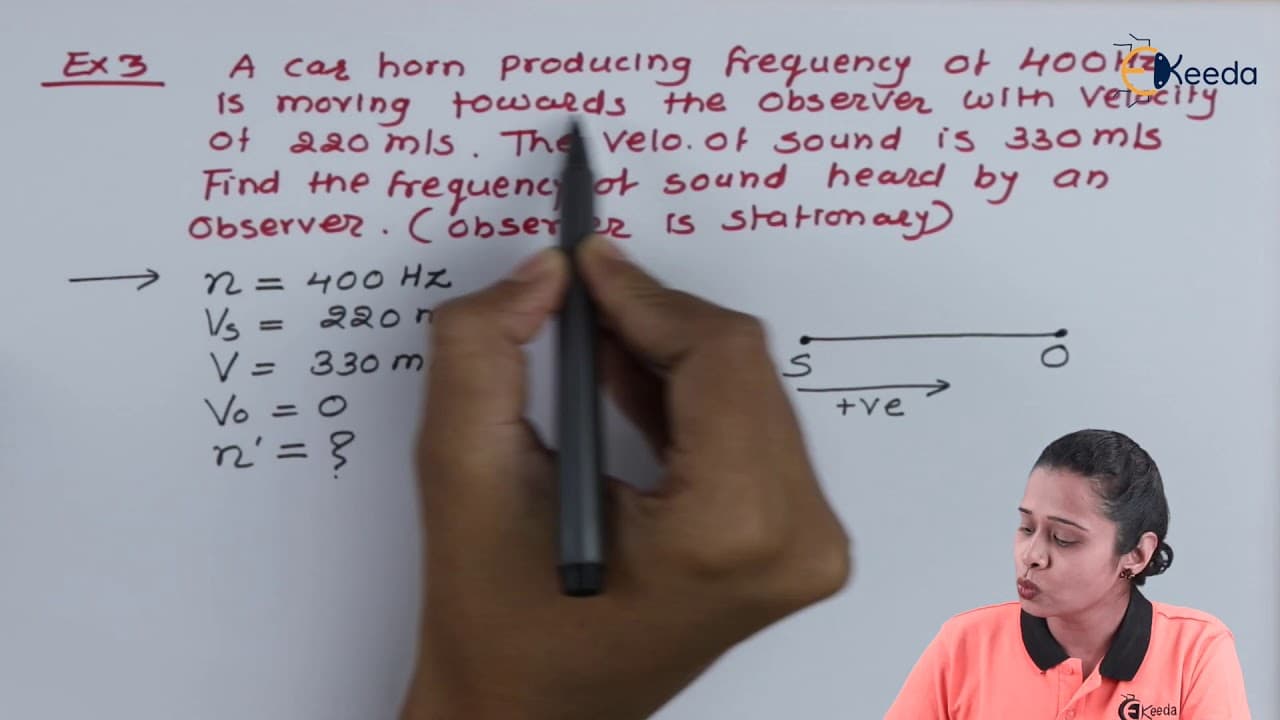 Ex 3 A car horn producing frequency of 400Hz
is moving towards the observer with velocity
of 220 m/s. The velo. of sound is 330 m/s
Find the frequency of sound heard by an
observer. (observer is stationary)
n = 400 Hz
Vs = 220 m
V = 330 m
Vo = 0
n' = ?
S O
+ve
EKeeda
EKeeda